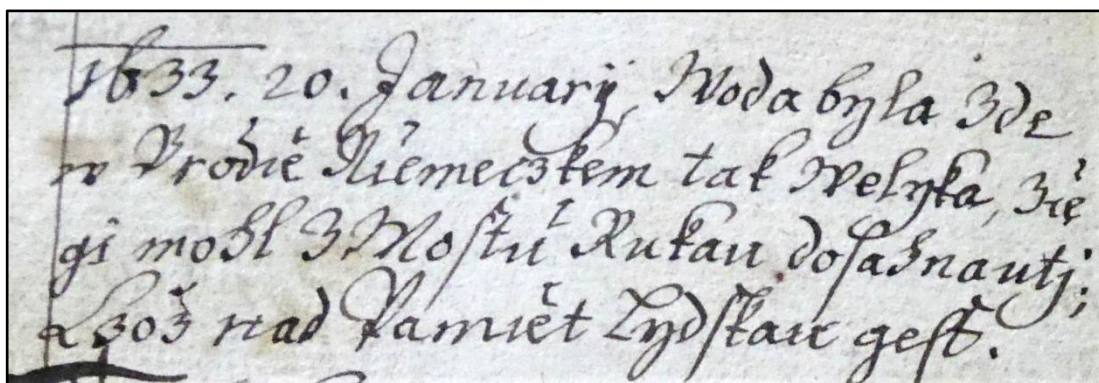 1633. 20. Januarÿ, Woda byla zde
w Brodie Niemeczkem tak Welyka, zie
gi mohl z Mostu Rukau dosahnautj;
Czož nad Pamiět Lydskau gest.